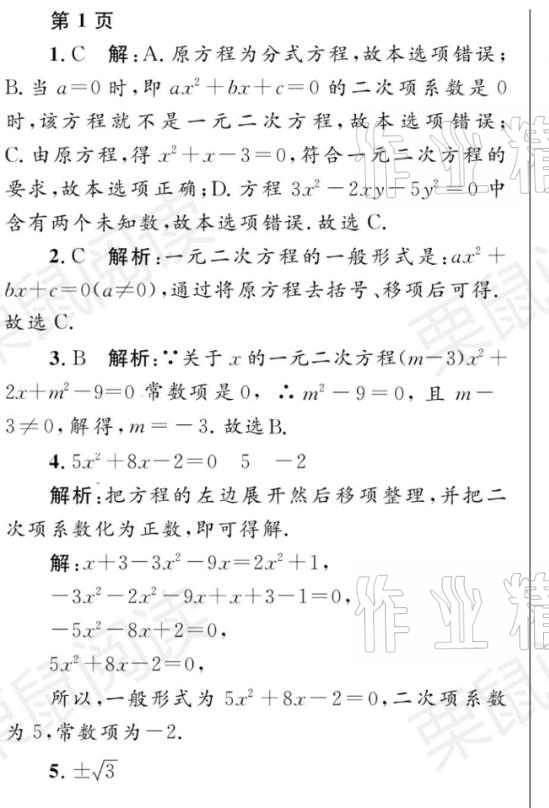 第 1 页
1. C 解:A. 原方程为分式方程,故本选项错误;
B. 当 a=0 时,即 ax²+bx+c=0 的二次项系数是 0
时,该方程就不是一元二次方程,故本选项错误;
C. 由原方程,得 x²+x-3=0,符合一元二次方程的
要求,故本选项正确;D. 方程 3x²-2xy-5y²=0 中
含有两个未知数,故本选项错误. 故选 C.
2. C 解析:一元二次方程的一般形式是:ax²+
bx+c=0(a≠0),通过将原方程去括号、移项后可得.
故选 C.
3. B 解析:∵关于 x 的一元二次方程(m-3)x²+
2x+m²-9=0 常数项是 0, ∴ m²-9=0, 且 m-
3≠0,解得,m=-3. 故选B.
4. 5x²+8x-2=0 5 -2
解析:把方程的左边展开然后移项整理,并把二
次项系数化为正数,即可得解.
解:x+3-3x²-9x=2x²+1,
-3x²-2x²-9x+x+3-1=0,
-5x²-8x+2=0,
5x²+8x-2=0,
所以,一般形式为 5x²+8x-2=0,二次项系数
为 5,常数项为-2.
5. ±√3
作业精
作业精
栗鼠阅读
栗鼠
栗鼠阅读
栗鼠